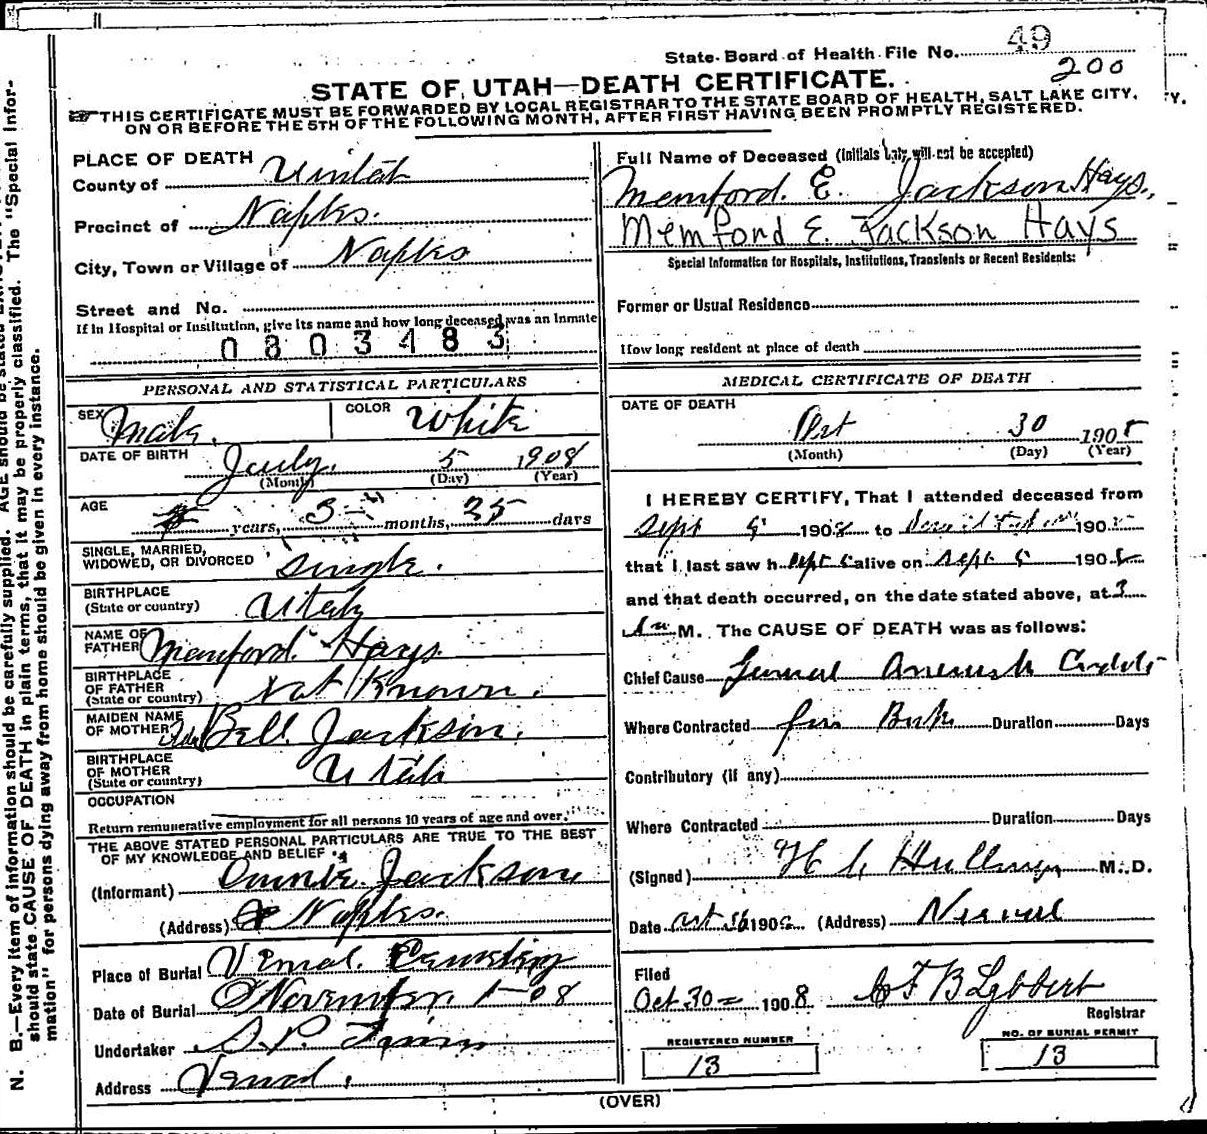 State Board of Health File No. 49
200
STATE OF UTAH—DEATH CERTIFICATE.
THIS CERTIFICATE MUST BE FORWARDED BY LOCAL REGISTRAR TO THE STATE BOARD OF HEALTH, SALT LAKE CITY,
ON OR BEFORE THE 5TH OF THE FOLLOWING MONTH, AFTER FIRST HAVING BEEN PROMPTLY REGISTERED.
PLACE OF DEATH
County of Uintah
Precinct of Naples.
City, Town or Village of Naples
Street and No.
If in Hospital or Institution, give its name and how long deceased was an Inmate
0803483
PERSONAL AND STATISTICAL PARTICULARS
SEX Male. COLOR White
DATE OF BIRTH July 5 1908
(Month) (Day) (Year)
AGE years, 3 months, 25 days
SINGLE, MARRIED,
WIDOWED, OR DIVORCED Single.
BIRTHPLACE
(State or country) Utah
NAME OF
FATHER Memford Hays
BIRTHPLACE
OF FATHER
(State or country) Not Known.
MAIDEN NAME
OF MOTHER Bell Jackson.
BIRTHPLACE
OF MOTHER
(State or country) Utah
OCCUPATION
Return remunerative employment for all persons 10 years of age and over.
THE ABOVE STATED PERSONAL PARTICULARS ARE TRUE TO THE BEST
OF MY KNOWLEDGE AND BELIEF
(Informant) Jackson
(Address) Naples.
Place of Burial Vernal Cemetery
Date of Burial November 1-08
Undertaker S.P.
Address Vernal.
Full Name of Deceased (Initials only will not be accepted)
Memford. E. Jackson Hays.
Memford E. Jackson Hays
Special Information for Hospitals, Institutions, Transients or Recent Residents:
Former or Usual Residence
How long resident at place of death
MEDICAL CERTIFICATE OF DEATH
DATE OF DEATH
Oct 30 1908
(Month) (Day) (Year)
I HEREBY CERTIFY, That I attended deceased from
Sept 5 1908 to 190
that I last saw h alive on Sept 5 1908
and that death occurred, on the date stated above, at 3
M. The CAUSE OF DEATH was as follows:
Chief Cause General
Where Contracted from Birth Duration Days
Contributory (if any)
Where Contracted Duration Days
(Signed) M. D.
Date Oct 30 190 (Address)
Filed
Oct 30 1908. F B Lybbert
Registrar
REGISTERED NUMBER
13
NO. OF BURIAL PERMIT
13
(OVER)
N. B.—Every item of information should be carefully supplied. AGE should be stated
should state CAUSE OF DEATH in plain terms, that it may be properly classified. The "Special Infor-
mation" for persons dying away from home should be given in every instance.